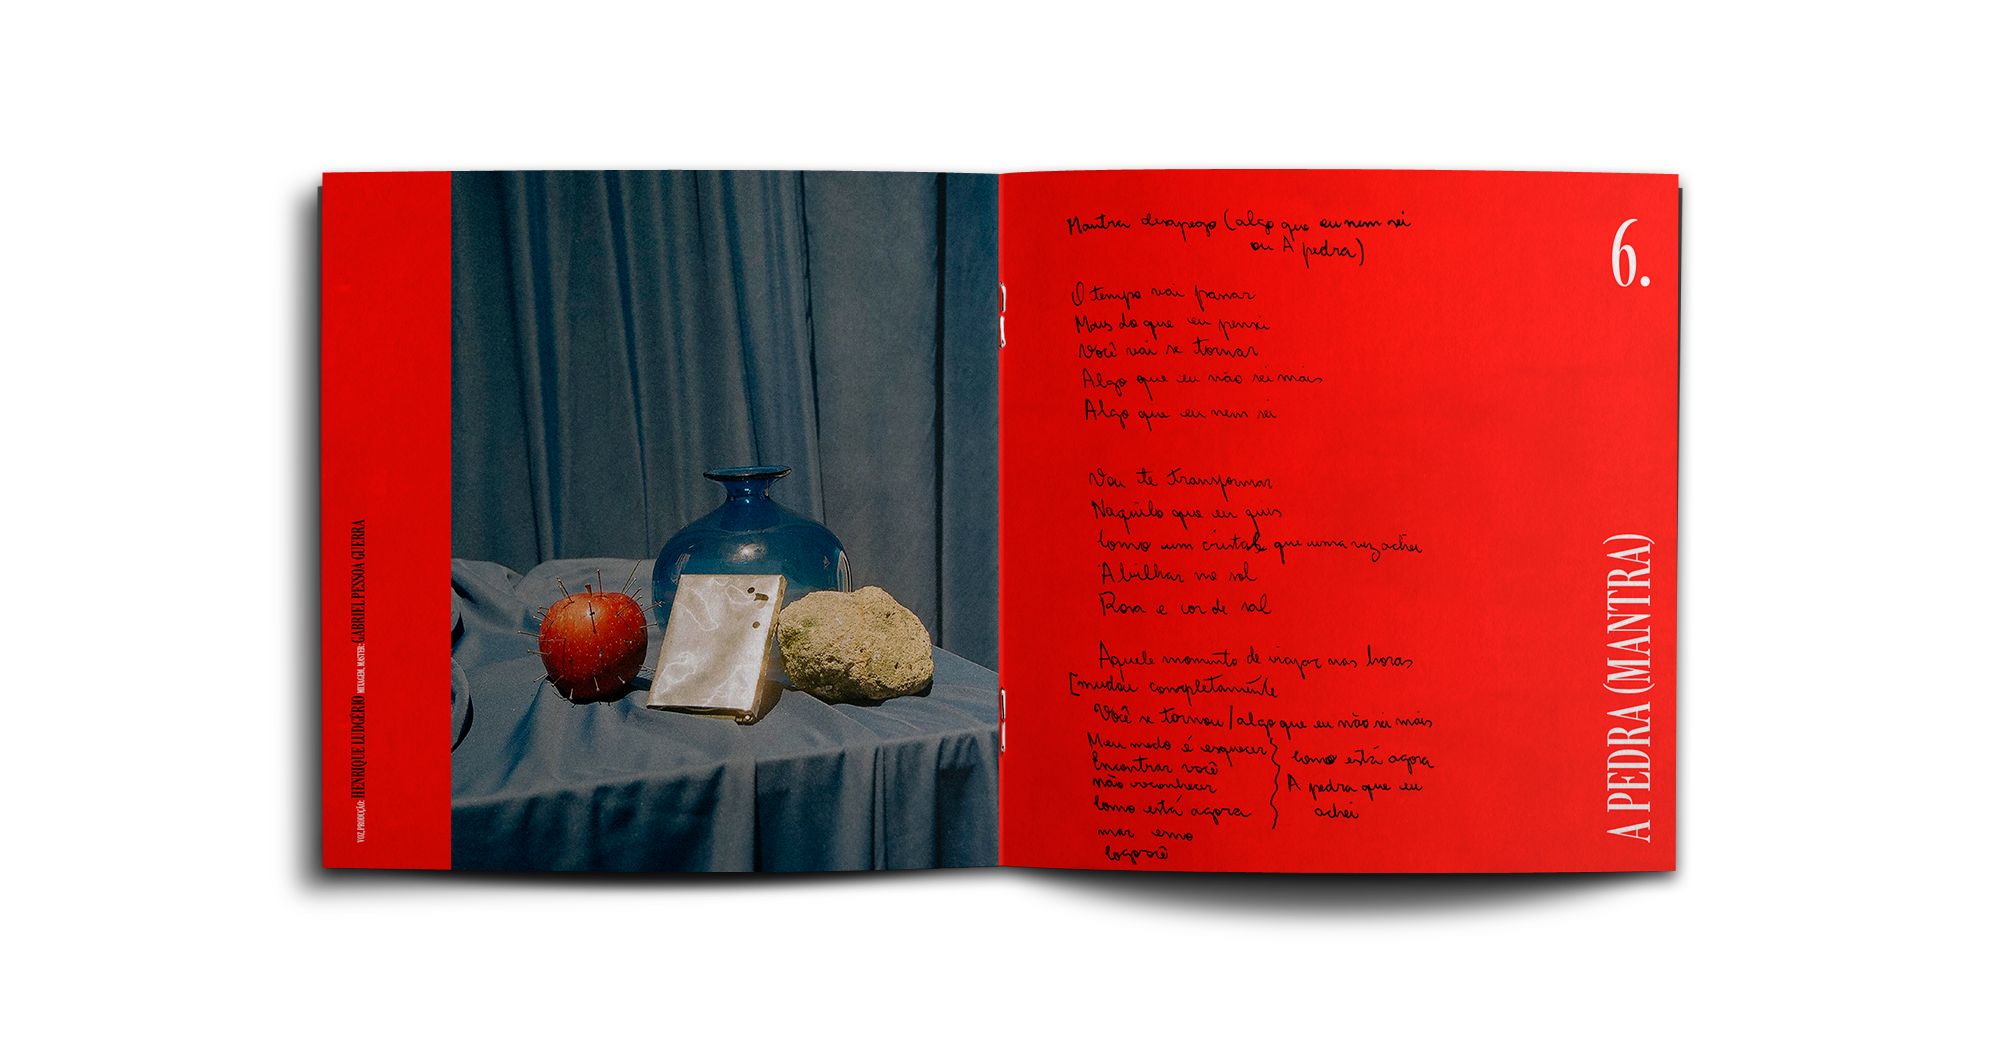 VOZ, PRODUÇÃO: HENRIQUE LUDGÉRIO MIXAGEM, MASTER: GABRIEL PESSOA GUERRA
Mantra desapego (algo que eu nem sei
ou A pedra)
O tempo vai passar
Mais do que eu pensei
Você vai se tornar
Algo que eu não sei mais
Algo que eu nem sei
Vou te transformar
Naquilo que eu quis
Como um cristal que uma vez achei
A brilhar no sol
Rosa e cor de sal
Aquele momento de viajar nas horas
[mudou completamente
Você se tornou/algo que eu não sei mais
Meu medo é esquecer
Encontrar você
não reconhecer
Como está agora
Como está agora
A pedra que eu
achei
6.
A PEDRA (MANTRA)